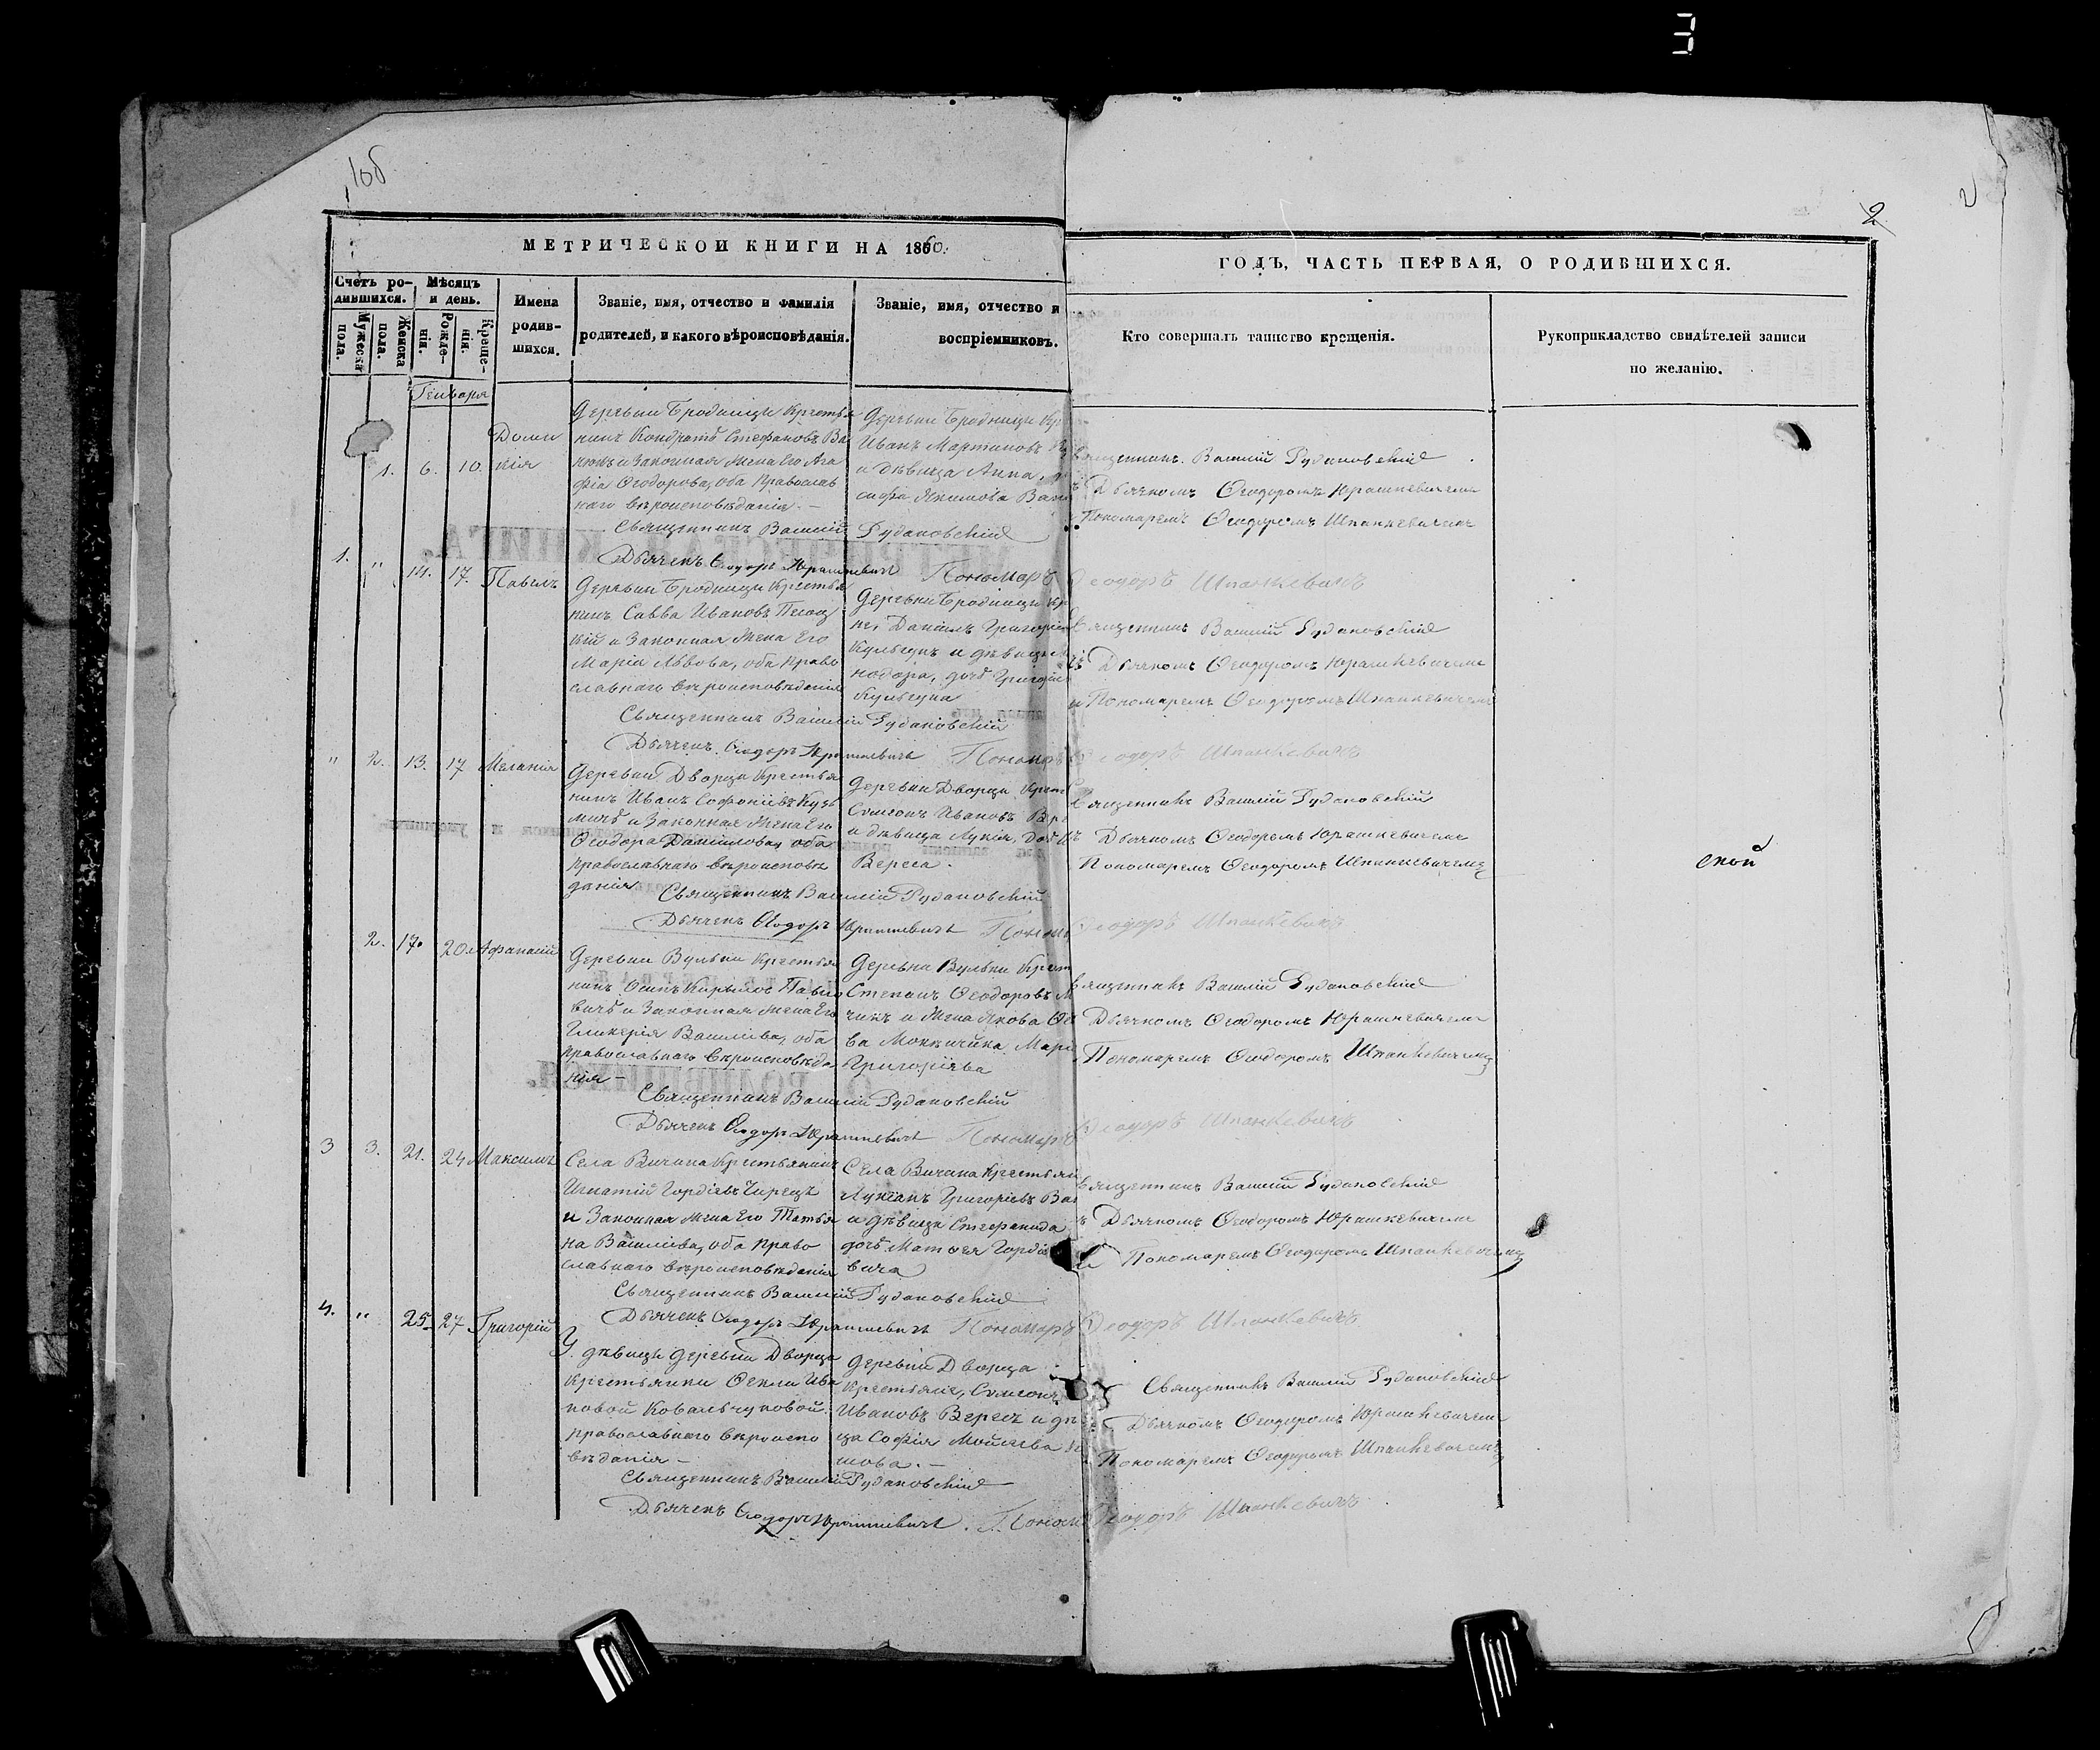 3
1об
2
2
МЕТРИЧЕСКОЙ КНИГИ НА 1860.
ГОДЪ, ЧАСТЬ ПЕРВАЯ, О РОДИВШИХСЯ.
Счетъ ро-
дившихся.
Мужеска
пола.
Женска
пола.
Мѣсяцъ
и день.
Рожде-
нія.
Креще-
нія.
Имена
родив-
шихся.
Званіе, имя, отчество и фамилія
родителей, и какого вѣроисповѣданія.
Званіе, имя, отчество и
воспріемниковъ.
Кто совершалъ таинство крещенія.
Рукоприкладство свидѣтелей записи
по желанію.
Генваря
1. 6. 10.
Доми
кія
Деревни Бродницы Крестья
нинъ Кондратъ Стефановъ Ва
нюкъ и Законная Жена Его Ага
фія Ѳеодорова, оба Православ
наго вѣроисповѣданія. —
Деревни Бродницы Кр
Иванъ Мартиновъ
и дѣвица Анна,
сифа Якимова Ван
Священникъ Василій Рудаковскій
Дьячкомъ Ѳеодоромъ Юрашкевичемъ
Пономаремъ Ѳеодоромъ Шпанкевичемъ
Священникъ Василій Рудаковскій
Дьячекъ Ѳеодоръ Юрашкевичъ Пономаръ Ѳеодоръ Шпанкевичъ
1. " 14. 17. Павелъ
Деревни Бродницы Крестья
нинъ Савва Ивановъ Песоц
кій и Законная Жена Его
Марія Львова, оба Право
славнаго вѣроисповѣданія
Деревни Бродницы Кр
не, Даніилъ Григорі
Кульгунъ и дѣвица
нодора, дочь Григорі
Кульгуна
Священникъ Василій Рудаковскій
Дьячкомъ Ѳеодоромъ Юрашкевичемъ
и Пономаремъ Ѳеодоромъ Шпанкевичемъ
Священникъ Василій Рудаковскій
Дьячекъ Ѳеодоръ Юрашкевичъ Пономаръ Ѳеодоръ Шпанкевичъ
" 2. 13. 17 Меланія
Деревни Дворца Крестья
нинъ Иванъ Софоніевъ Кузь
мичъ и Законная Жена Его
Ѳеодора Даніилова, оба
Православнаго вѣроисповѣ
данія
Деревни Дворца Крест
Сѵмеонъ Ивановъ Вер
и дѣвица Лукія, дочь
Вереса.
Священникъ Василій Рудаковскій
Дьячкомъ Ѳеодоромъ Юрашкевичемъ
Пономаремъ Ѳеодоромъ Шпанкевичемъ
ской
Священникъ Василій Рудаковскій
Дьячекъ Ѳеодоръ Юрашкевичъ Поном Ѳеодоръ Шпанкевичъ
2. 17. 20. Афанасій
Деревни Вульки Крестья
нинъ Осипъ Кириловъ Павло
вичъ и Законная Жена Его
Гликерія Василіева, оба
Православнаго вѣроисповѣда
нія —
Деревни Вульки Крест
Степанъ Ѳеодоровъ М
чикъ и Жена Якова Ѳе
ва Мокничика Мари
Григоріева
Священникъ Василій Рудаковскій
Дьячкомъ Ѳеодоромъ Юрашкевичемъ
Пономаремъ Ѳеодоромъ Шпанкевичемъ
Священникъ Василій Рудаковскій
Дьячекъ Ѳеодоръ Юрашкевичъ Пономаръ Ѳеодоръ Шпанкевичъ
3 3. 21. 24 Максимъ
Села Вичина Крестьянинъ
Игнатій Гордіевъ Чирецъ
и Законная Жена Его Татья
на Василіева, оба Право
славнаго вѣроисповѣданія
Села Вичина Крестьян
Лукіанъ Григоріевъ Ва
и дѣвица Стефанида
дочь Матѳея Горді
вича
Священникъ Василій Рудаковскій
Дьячкомъ Ѳеодоромъ Юрашкевичемъ
и Пономаремъ Ѳеодоромъ Шпанкевичемъ
Священникъ Василій Рудаковскій
Дьячекъ Ѳеодоръ Юрашкевичъ Пономаръ Ѳеодоръ Шпанкевичъ
4. " 25. 27 Григорій
У дѣвицы деревни Дворца
Крестьянки Ѳеклы Ива
новой Ковальчуковой
Православнаго вѣроиспо
вѣданія —
Деревни Дворца
Крестьяне, Сѵмеонъ
Ивановъ Вересъ и дѣ
ца Софія Моисеева
мова. —
Священникъ Василій Рудаковскій
Дьячкомъ Ѳеодоромъ Юрашкевичемъ
Пономаремъ Ѳеодоромъ Шпанкевичемъ
Священникъ Василій Рудаковскій
Дьячекъ Ѳеодоръ Юрашкевичъ. Поном Ѳеодоръ Шпанкевичъ